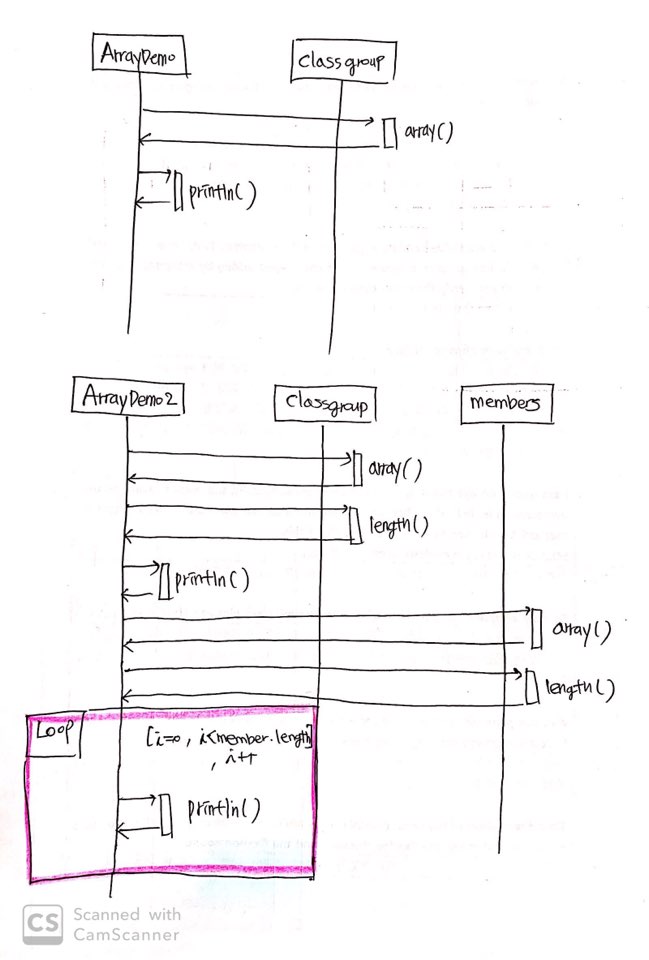 ArrayDemo
classgroup
array()
println()
ArrayDemo2
classgroup
members
array()
length()
println()
array()
length()
Loop
[i=0, i<member.length]
, i++
println()
CS
Scanned with
CamScanner